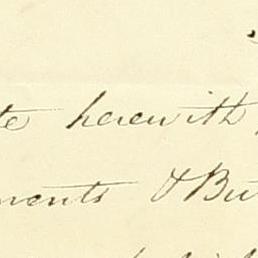 te herewith
ments & Bu